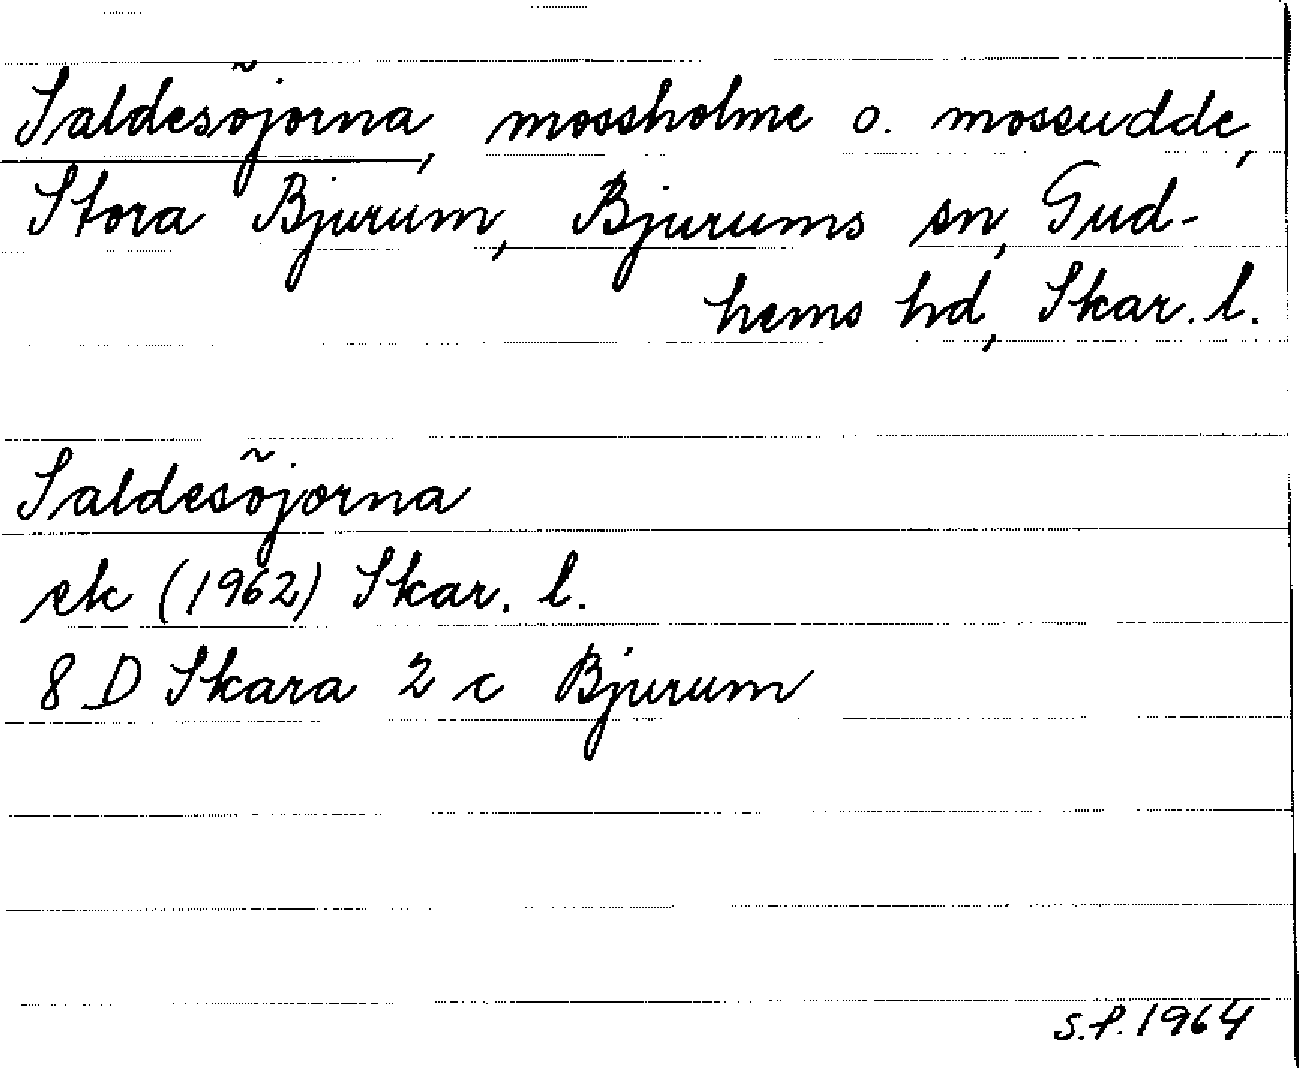 Saldesöjorna, mossholme o. mosseudde,
Stora Bjurum, Bjurums sn, Gud-
hems hd, Skar. l.
Saldesöjorna
ek (1962) Skar. l.
8 D Skara 2 c Bjurum
S.F. 1964